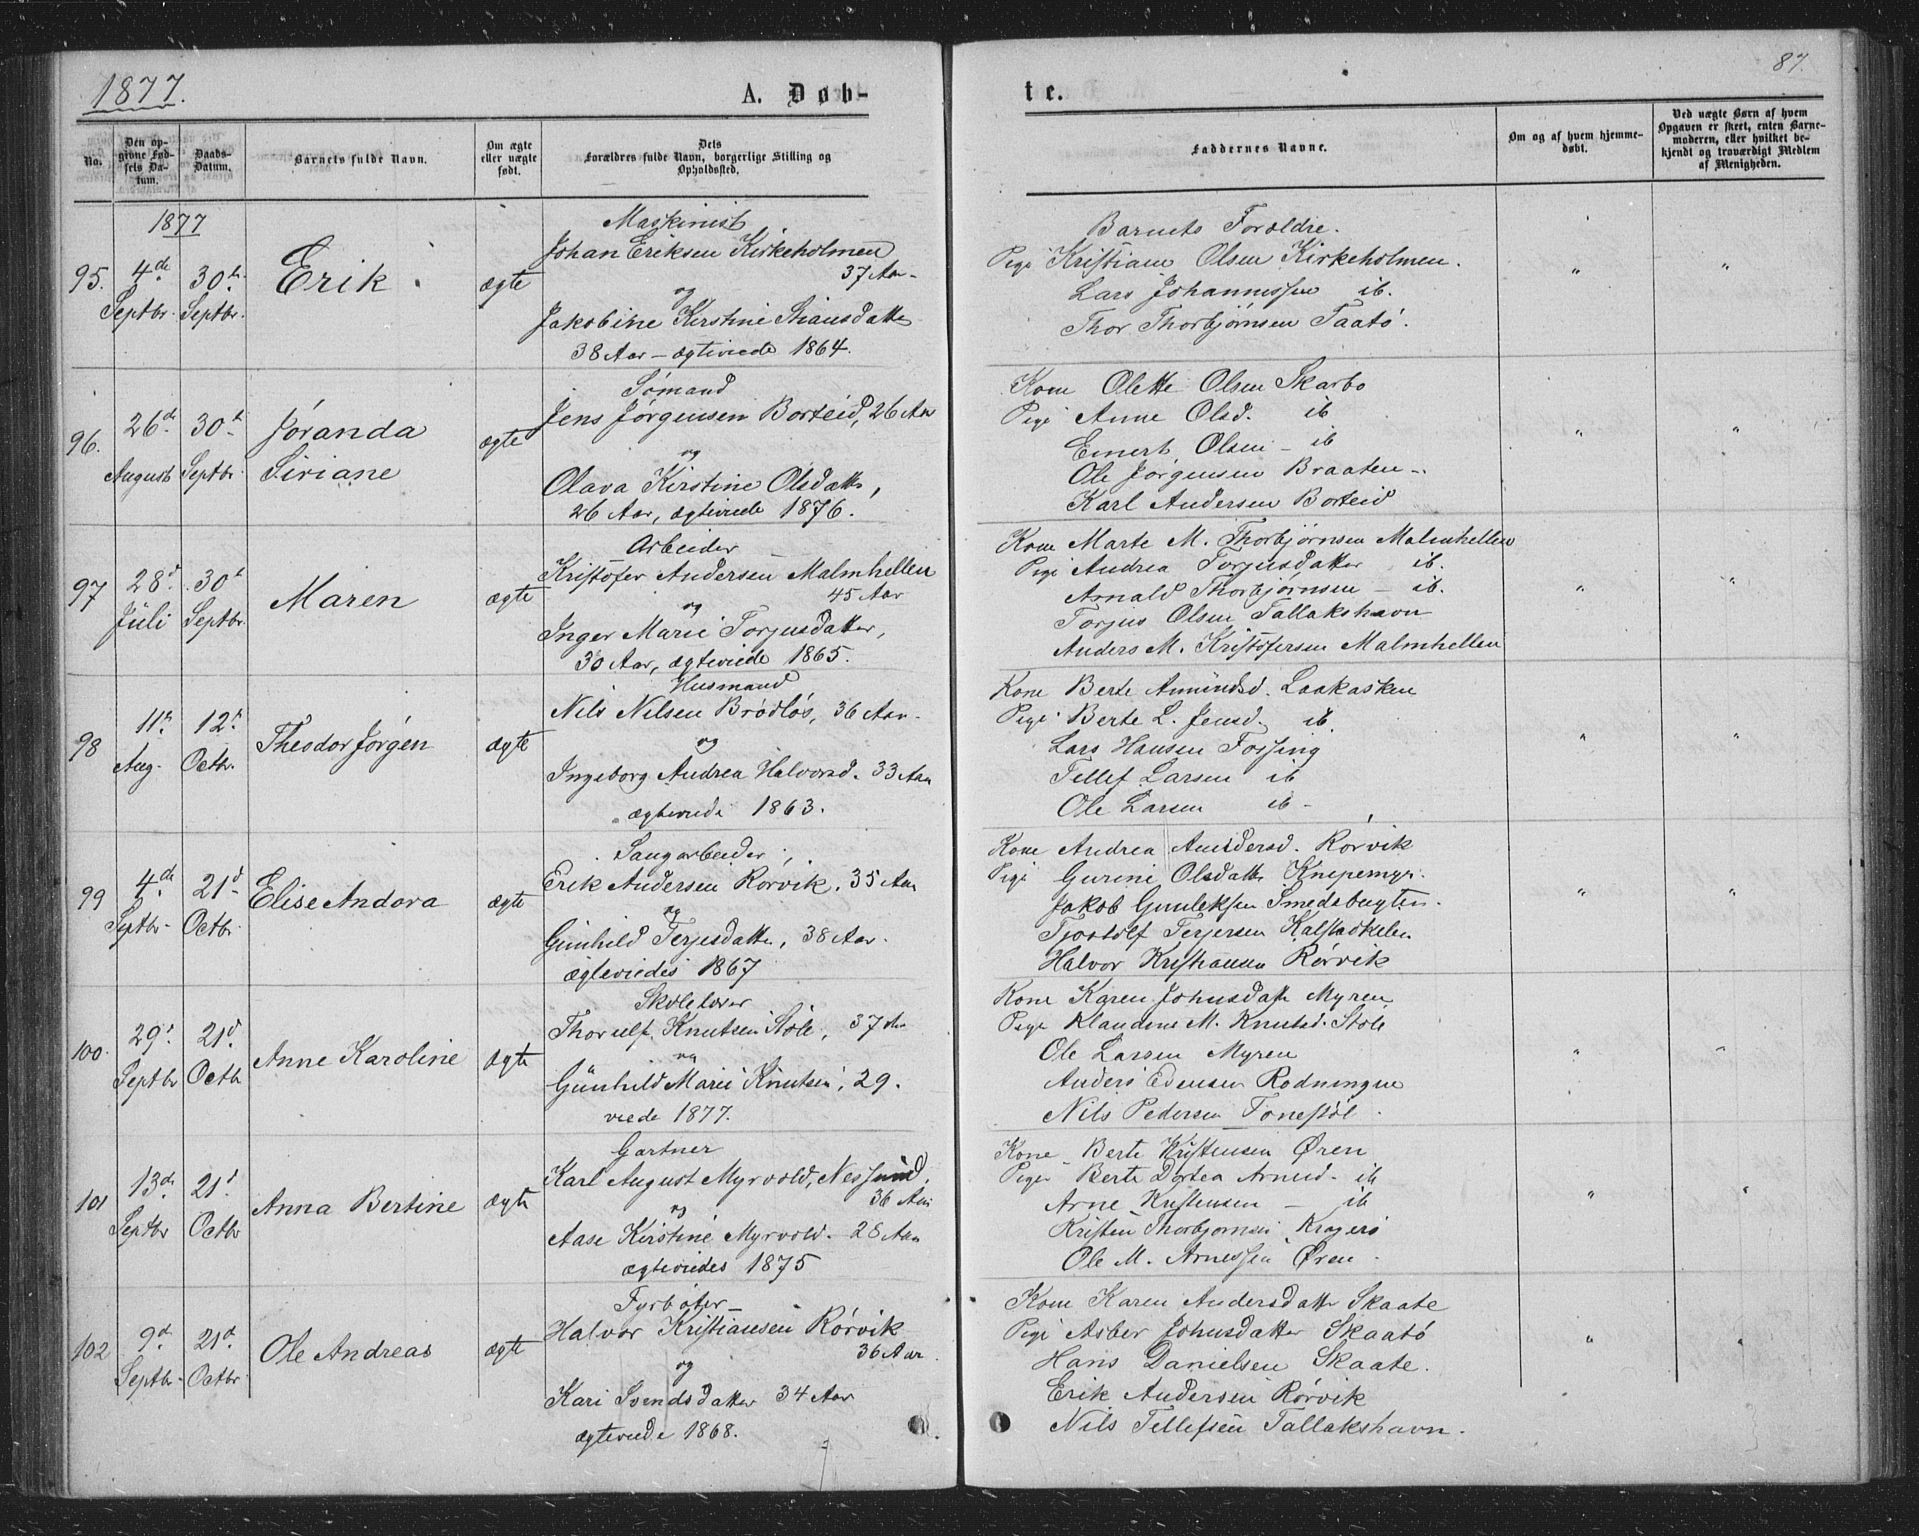 1877.
A. Døb-
No.
Den opgivne Fødsels Datum.
Daabs-Datum.
Barnets fulde Navn.
Om ægte eller uægte født.
Dets Forældres fulde Navn, borgerlige Stilling og Opholdssted.
1877
95.
4de Septbr.
30te Septbr.
Erik
ægte
Maskinist
Johan Eriksen Kirkeholmen
37 Aar
og
Jakobine Kirstine
38 Aar - ægteviede 1864.
96.
26de August
30te Septbr
Jóranda
Siriane
ægte
Sómand
Jens Jørgensen Borteid, 26 Aar
og
Olava Kirstine Olsdatter,
26 Aar, ægteviede 1876.
97
28de Júli
30te Septbr
Maren
ægte
Arbeider
Kristofer Andersen Malmhellen
45 Aar
og
Inger Marie Torjusdatter,
30 Aar, ægteviede 1865.
98
11te Aug.
12te Octbr.
Theodor Jørgen
ægte
Husmand
Nils Nilsen Brødløs, 36 Aar
og
Ingeborg Andrea Halvorsd. 33 Aar
ægteviede 1863.
99
4de Septbr
21de Octbr.
Elise Andora
ægte
Saugarbeider
Erik Andersen Rorvik. 35 Aar
og
Gunhild Terjesdatter, 38 Aar.
ægteviedes 1867
100.
29de Septbr
21de Octb
Anne Karoline
ægte
Skolelærer
Thorulf Knutsen Støle, 37 Aar
og
Günhild Marie Knutsen, 29.
viede 1877.
101
13de Septbr
21de Octbr
Anna Bertine
ægte
Gartner
Karl August Myrvold, Nessund.
36 Aar
og
Aase Kirstine Myrvold. 28 Aar
ægteviedes 1875
102
9de Septbr.
21de Octbr.
Ole Andreas
ægte
Fyrbøter
Halvor Kristiansen Rórvik
36 Aar.
og
Kari Svendsdatter 34 Aar
ægteviede 1868.
87.
te.
Faddernes Navne.
Om og af hvem hjemmedøbt.
Ved uægte Børn af hvem Opgaven er skeet, enten Barnemoderen, eller hvilket bekjendt og troværdigt Medlem af Menigheden.
Barnets Forældre.
Pige Kristiane Olsen Kirkeholmen.
Lars Johannessen ib.
Thor Thorbjørnsen Taató.
" "
Kone Olette Olsen Skarbo
Pige Anne Olsd. ib
Emert Olsen ib
Ole Jørgensen Braaten
Karl Andersen Borteid
" "
Kone Marte M. Thorbjørnsen Malmhellen
Pige Andrea Torjusdatter ib.
Arnald Thorbjørnsen ib.
Torjus Olsen Tallakshavn
Anders M. Kristofersen Malmhellen
" "
Kone Berte Amündsd. Laakasken
Pige Berte L. Jensd. ib.
Lars Hansen Fossing
Tellef Larsen ib
Ole Larsen ib
" "
Kone Andrea Andersd. Rórvik
Pige Gurine Olsdatter Knipemyr.
Jakob Gunleksen Smedsbugten.
Tjostolf Terjersen Kalstadkilen
Halvor Kristiansen Rørvik
" "
Kone Karen Johnsdatter Myren
Pige Klaudine M. Knutsd. Stole
Ole Larsen Myren
Anders Edensen Rodningen
Nils Pedersen Tonestøl.
" "
Kone Berte Kristensen Øren
Pige Berte Dortea Arnesd. ib
Arne Kristensen ib
Kristen Thorbjornsen Kragerø
Ole M. Arnessen Øren.
" "
Kone Karen Andersdatter Skaate
Pige Asber Johnsdatter Skaató
Hans Danielsen Skaate.
Erik Andersen Rórvik
Nils Tellefsen Tallakshavn.
" "